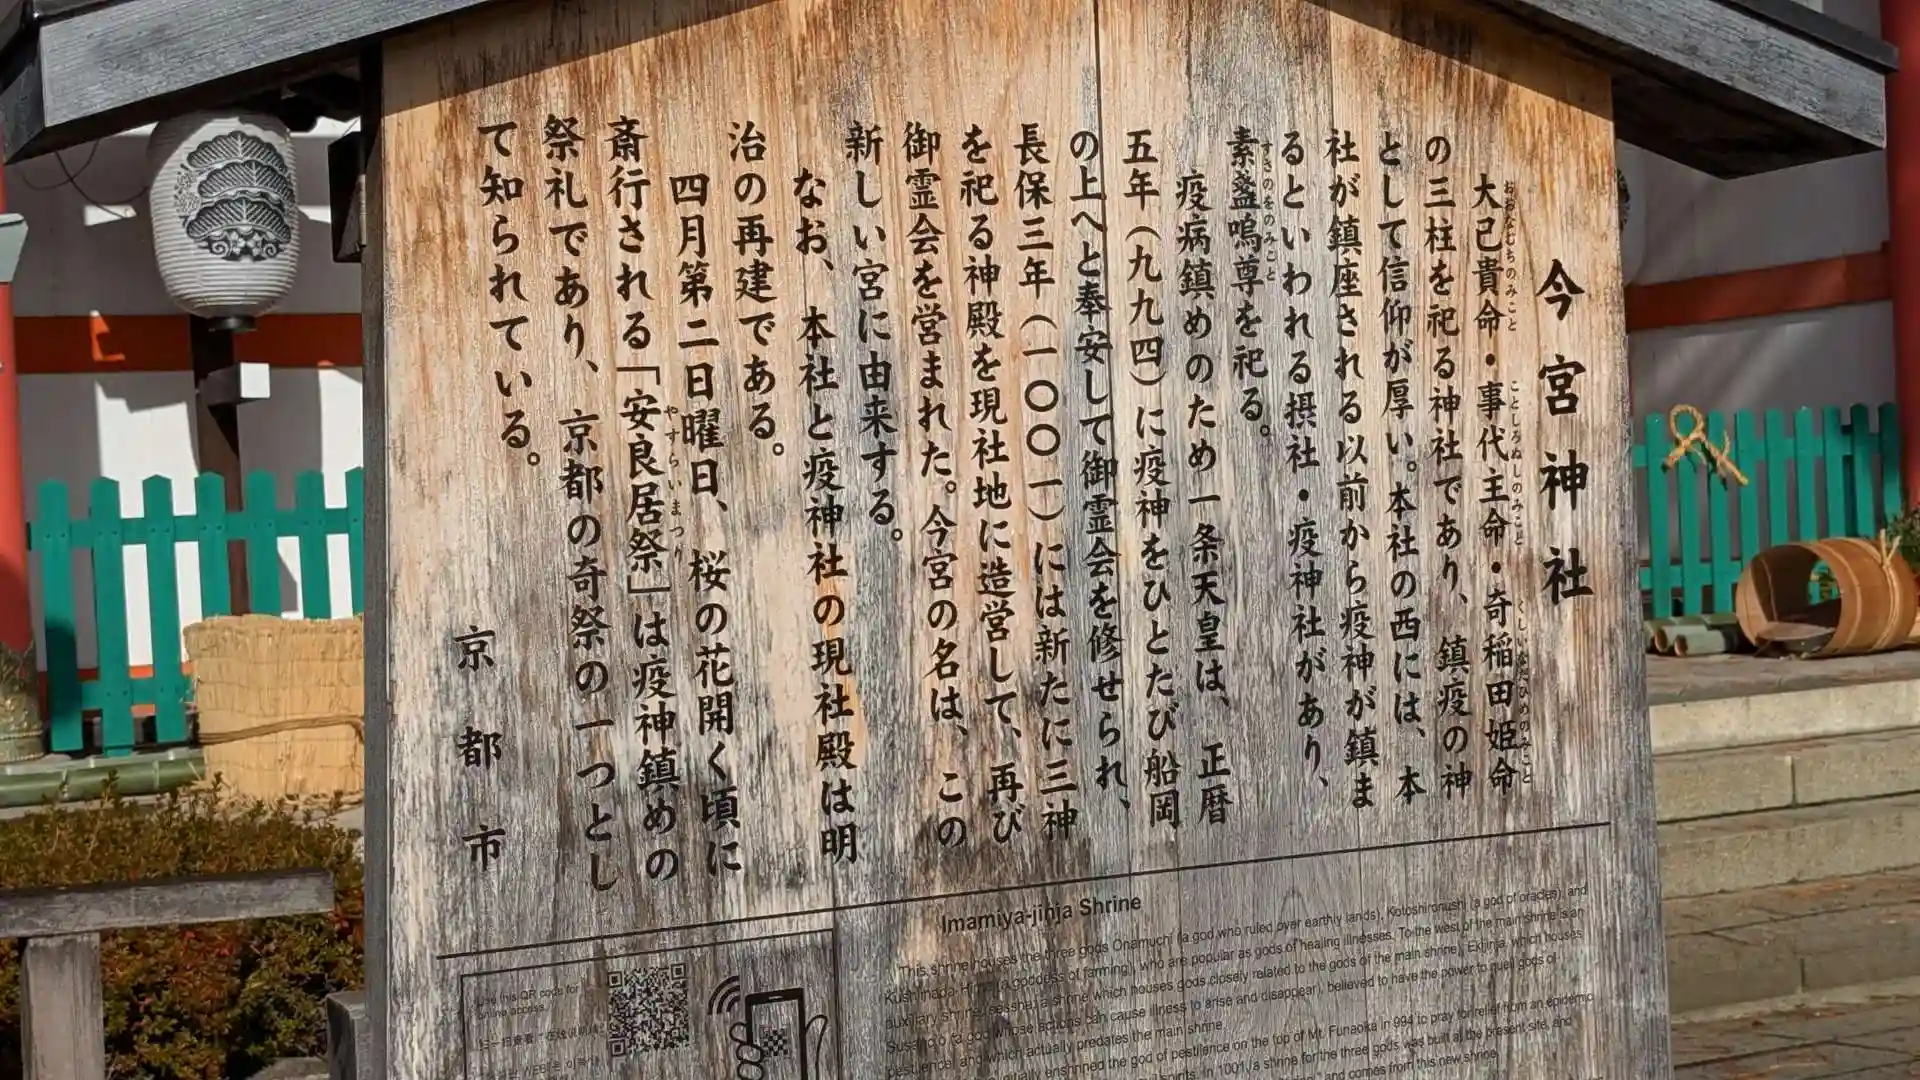 今宮神社
大己貴命・事代主命・奇稲田姫命
おおなむちのみこと ことしろぬしのみこと くしいなだひめのみこと
の三柱を祀る神社であり、鎮疫の神
として信仰が厚い。本社の西には、本
社が鎮座される以前から疫神が鎮ま
るといわれる摂社・疫神社があり、
素盞嗚尊を祀る。
すさのをのみこと
疫病鎮めのため一条天皇は、正暦
五年(九九四)に疫神をひとたび船岡
の上へと奉安して御霊会を修せられ、
長保三年(一〇〇一)には新たに三神
を祀る神殿を現社地に造営して、再び
御霊会を営まれた。今宮の名は、この
新しい宮に由来する。
なお、本社と疫神社の現社殿は明
治の再建である。
四月第二日曜日、桜の花開く頃に
斎行される「安良居祭」は疫神鎮めの
やすらいまつり
祭礼であり、京都の奇祭の一つとし
て知られている。
京都市
Imamiya-jinja Shrine
This shrine houses the three gods Onamuchi (a god who ruled over earthly lands), Kotoshironushi (a god of oracles), and
Kushiinada-Hime (a goddess of farming), who are popular as gods of healing illnesses. To the west of the main shrine is an
auxiliary shrine (sessha, a shrine which houses gods closely related to the gods of the main shrine), Ekijinja, which houses
Susano-o (a god whose actions can cause illness to arise and disappear), believed to have the power to quell gods of
pestilence and which actually predates the main shrine.
initially enshrined the god of pestilence on the top of Mt. Funaoka in 994 to pray for relief from an epidemic
spirits. In 1001, a shrine for the three gods was built at the present site, and
and comes from this new shrine.
Use this QR code for
online access.